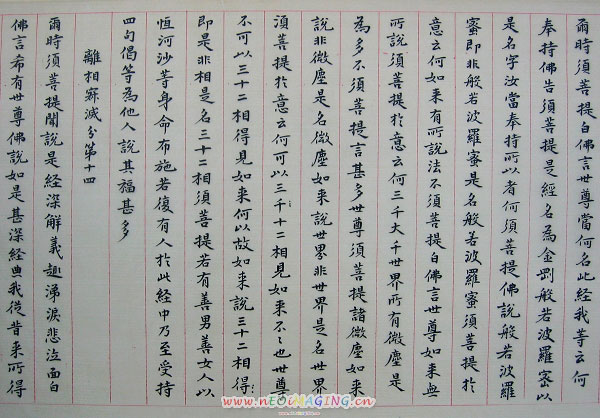 爾時須菩提白佛言世尊當何名此經我等云何
奉持佛告須菩提是經名為金剛般若波羅蜜以
是名字汝當奉持所以者何須菩提佛說般若波羅
蜜即非般若波羅蜜是名般若波羅蜜須菩提於
意云何如來有所說法不須菩提白佛言世尊如來無
所說須菩提於意云何三千大千世界所有微塵是
為多不須菩提言甚多世尊須菩提諸微塵如來
說非微塵是名微塵如來說世界非世界是名世界
須菩提於意云何可以三千十二相見如來不不也世尊
不可以三十二相得見如來何以故如來說三十二相得
即是非相是名三十二相須菩提若有善男善女人以
恒河沙等身命布施若復有人於此經中乃至受持
四句偈等為他人說其福甚多
離相寂滅分第十四
爾時須菩提聞說是經深解義趣涕淚悲泣面白
佛言希有世尊佛說如是甚深經典我從昔來所得
www.neoimaging.cn